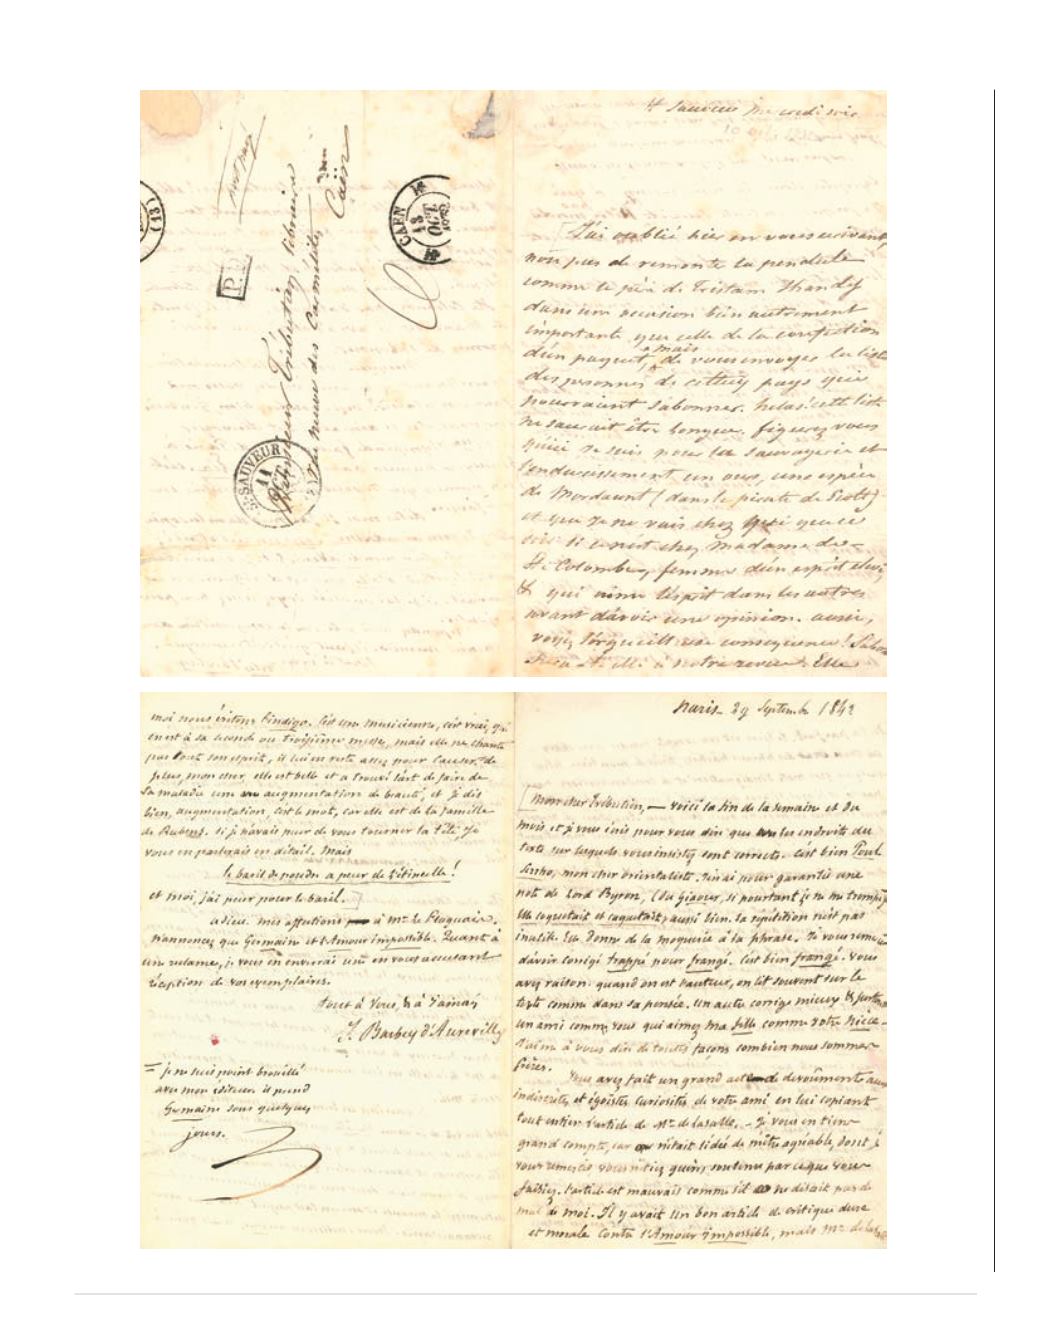 port payé
P.P.
Monsieur Trébutien, libraire
rue neuve des Carmélites
Caën
CAEN
13
OCT.
St-SAUVEUR
11
OCT.
(13)
St Sauveur Mercredi soir
J'ai oublié hier en vous écrivant,
non pas de remonter la pendule
comme le père de Tristam Shandy
dans une occasion bien autrement
importante que celle de la confection
d'un paquet, mais de vous envoyer la liste
des personnes de cettuy pays qui
pourraient s'abonner. hélas! cette liste
ne saurait être longue. figurez vous
qu'ici je suis pour la sauvagerie et
l'endurcissement un ours, une espèce
de Mordaunt (dans le pirate de Scott)
et que je ne vais chez qui que ce
soit si ce n'est chez Madame de
St. Colombe, femme d'un esprit élevé
& qui aime l'esprit dans les autres
avant d'avoir une opinion. aussi,
voyez l'orgueilleuse conséquence!
à notre revue. Elle
moi nous évitons l'indigo. C'est une musicienne, c'est vrai, qui
en est à sa seconde ou troisième messe, mais elle ne chante
pas tout son esprit, il lui en reste assez pour causer. de
plus, mon cher, elle est belle et a trouvé l'art de faire de
sa maladie une augmentation de beauté, et je dis
bien, augmentation, c'est le mot, car elle est de la famille
de Rubens. si je n'avais peur de vous tourner la tête, je
vous en parlerais en détail. Mais
le baril de poudre a peur de l'étincelle!
et moi, j'ai peur pour le baril.
adieu. mes affections à Mr. le Flaguais.
n'annoncez que Germaine et l'Amour impossible. Quant à
une réclame, je vous en enverrai une en vous accusant
réception de vos exemplaires.
Tout à Vous, & à jamais
J. Barbey d'Aurevilly
= je ne suis point brouillé
avec mon éditeur. il prend
Germaine sous quelques
jours.
Paris. 29 Septembre 1842
Mon cher Trébutien, — voici la fin de la semaine et du
mois et je vous écris pour vous dire que les endroits du
texte sur lesquels vous insistez sont corrects. C'est bien
mon cher orientaliste. J'en ai pour garantie une
note de Lord Byron, (du giaour, si pourtant je ne me trompe)
Elle coquetait et caquetait, aussi bien. la répétition n'est pas
inutile. Elle donne de la moquerie à la phrase. Je vous remercie
d'avoir corrigé frappé pour frangé. C'est bien frangé. Vous
avez raison. quand on est l'auteur, on lit souvent sur le
texte comme dans sa pensée. Un autre corrige mieux & surtout
un ami comme vous qui aimez ma fille comme votre nièce.
J'aime à vous dire de toutes façons combien nous sommes
frères.
Vous avez fait un grand acte de dévoûment aux
indiscrètes et égoïstes curiosités de votre ami en lui copiant
tout entier l'article de Mr. de Lasalle. – Je vous en tiens
grand compte, car n'était l'idée de m'être agréable, dont je
vous remercie vous n'étiez guère, soutenu par ce que vous
faisiez. l'article est mauvais comme s'il ne disait pas de
mal de moi. Il y avait un bon article de critique dure
et morale contre l'Amour impossible, mais Mr. de Lasalle